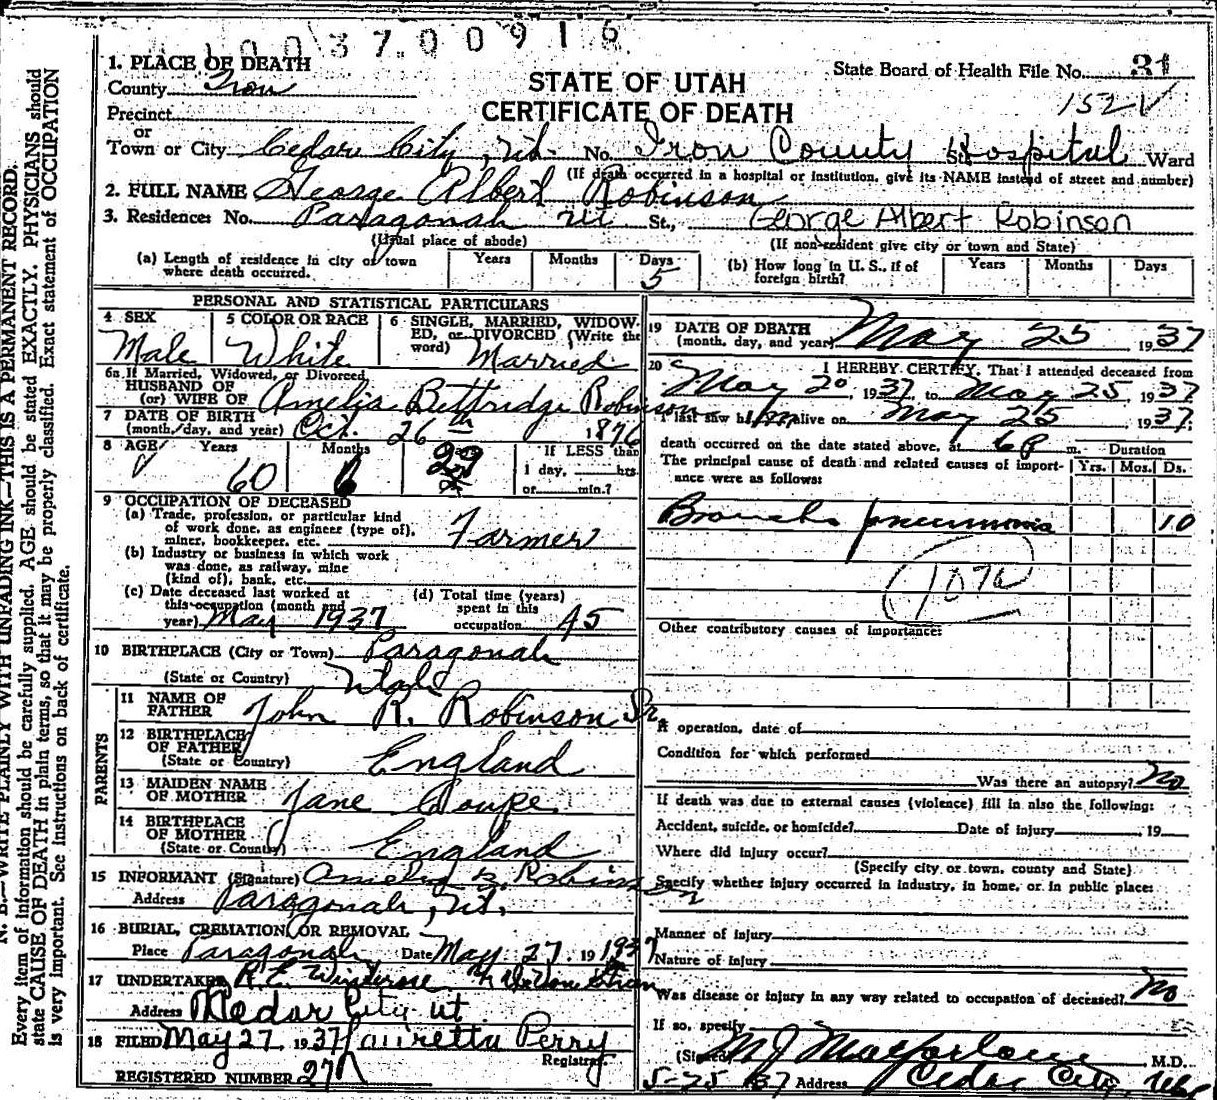 1003700916
1. PLACE OF DEATH
STATE OF UTAH
CERTIFICATE OF DEATH
State Board of Health File No. 31
152 V
County Iron
Precinct
or
Town or City Cedar City, Ut. No. Iron County Hospital St. Ward
(If death occurred in a hospital or institution, give its NAME instead of street and number)
2. FULL NAME George Albert Robinson
3. Residences No. Paragonah Ut St., George Albert Robinson
(Usual place of abode) (If non-resident give city or town and State)
(a) Length of residence in city or town where death occurred. Years Months Days 5
(b) How long in U. S., if of foreign birth? Years Months Days
PERSONAL AND STATISTICAL PARTICULARS
4 SEX Male
5 COLOR OR RACE White
6 SINGLE, MARRIED, WIDOWED, or DIVORCED (Write the word) Married
6a If Married, Widowed, or Divorced
HUSBAND OF
(or) WIFE OF Amelia Bettridge Robinson
7 DATE OF BIRTH
(month, day, and year) Oct. 26th 1876
8 AGE Years 60 Months 6 Days 29 If LESS than 1 day, hrs. or min.?
9 OCCUPATION OF DECEASED
(a) Trade, profession, or particular kind of work done, as engineer (type of), miner, bookkeeper, etc. Farmer
(b) Industry or business in which work was done, as railway, mine (kind of), bank, etc.
(c) Date deceased last worked at this occupation (month and year) May 1937
(d) Total time (years) spent in this occupation 45
10 BIRTHPLACE (City or Town) Paragonah
(State or Country) Utah
PARENTS
11 NAME OF FATHER John R. Robinson Sr.
12 BIRTHPLACE OF FATHER (State or Country) England
13 MAIDEN NAME OF MOTHER Jane
14 BIRTHPLACE OF MOTHER (State or Country) England
15 INFORMANT (Signature) Amelia B. Robinson
Address Paragonah, Ut.
16 BURIAL, CREMATION, OR REMOVAL
Place Paragonah Date May 27, 19 1937
17 UNDERTAKER R. E.
Address Cedar City Ut
18 FILED May 27, 1937 Lauretta Perry
Registrar
REGISTERED NUMBER 27
19 DATE OF DEATH
(month, day, and year) May 25, 1937
20 I HEREBY CERTIFY, That I attended deceased from
May 20, 1937, to May 25, 1937
I last saw him alive on May 25, 1937;
death occurred on the date stated above, at 6 P m. Duration
The principal cause of death and related causes of importance were as follows: Yrs. Mos. Ds.
Broncho pneumonia 10
107a
Other contributory causes of importance:
If operation, date of
Condition for which performed
Was there an autopsy? No
If death was due to external causes (violence) fill in also the following:
Accident, suicide, or homicide? Date of injury , 19
Where did injury occur?
(Specify city or town, county and State)
Specify whether injury occurred in industry, in home, or in public place:
Manner of injury
Nature of injury
Was disease or injury in any way related to occupation of deceased? No
If so, specify
(Signed) M J Macfarlane M.D.
5-25 37 Address Cedar City, Utah
N. B.—WRITE PLAINLY WITH UNFADING INK—THIS IS A PERMANENT RECORD.
Every item of information should be carefully supplied. AGE should be stated EXACTLY. PHYSICIANS should
state CAUSE OF DEATH in plain terms, so that it may be properly classified. Exact statement of OCCUPATION
is very important. See instructions on back of certificate.